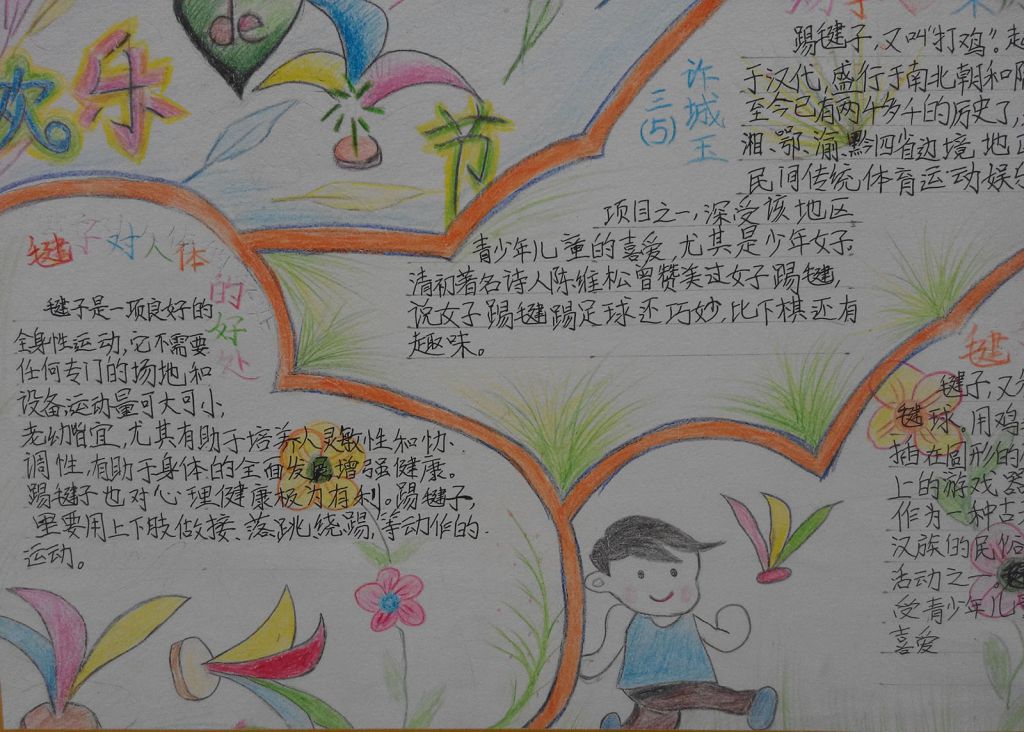 欢乐
de
节
许城玉
三(5)
踢毽子,又叫“打鸡”。起
于汉代,盛行于南北朝和隋
至今已有两千多年的历史了,
湘、鄂、渝、黔四省边境地区
民间传统体育运动娱乐
项目之一,深受该地区
青少年儿童的喜爱,尤其是少年女子.
清初著名诗人陈维松曾赞美过女子踢毽,
说女子踢毽踢足球还巧妙,比下棋还有
趣味。
毽子对人体
的好处
毽子是一项良好的
全身性运动,它不需要
任何专门的场地和
设备,运动量可大可小,
老幼皆宜,尤其有助于培养人灵敏性和协
调性,有助于身体的全面发展,增强健康。
踢毽子也对心理健康极为有利。踢毽子,
里要用上下肢做接、落,跳,绕踢,等动作的
运动。
毽
毽子,又
毽球。用鸡
插在圆形的
上的游戏器
作为一种古
汉族的民俗
活动之一。
受青少年儿
喜爱